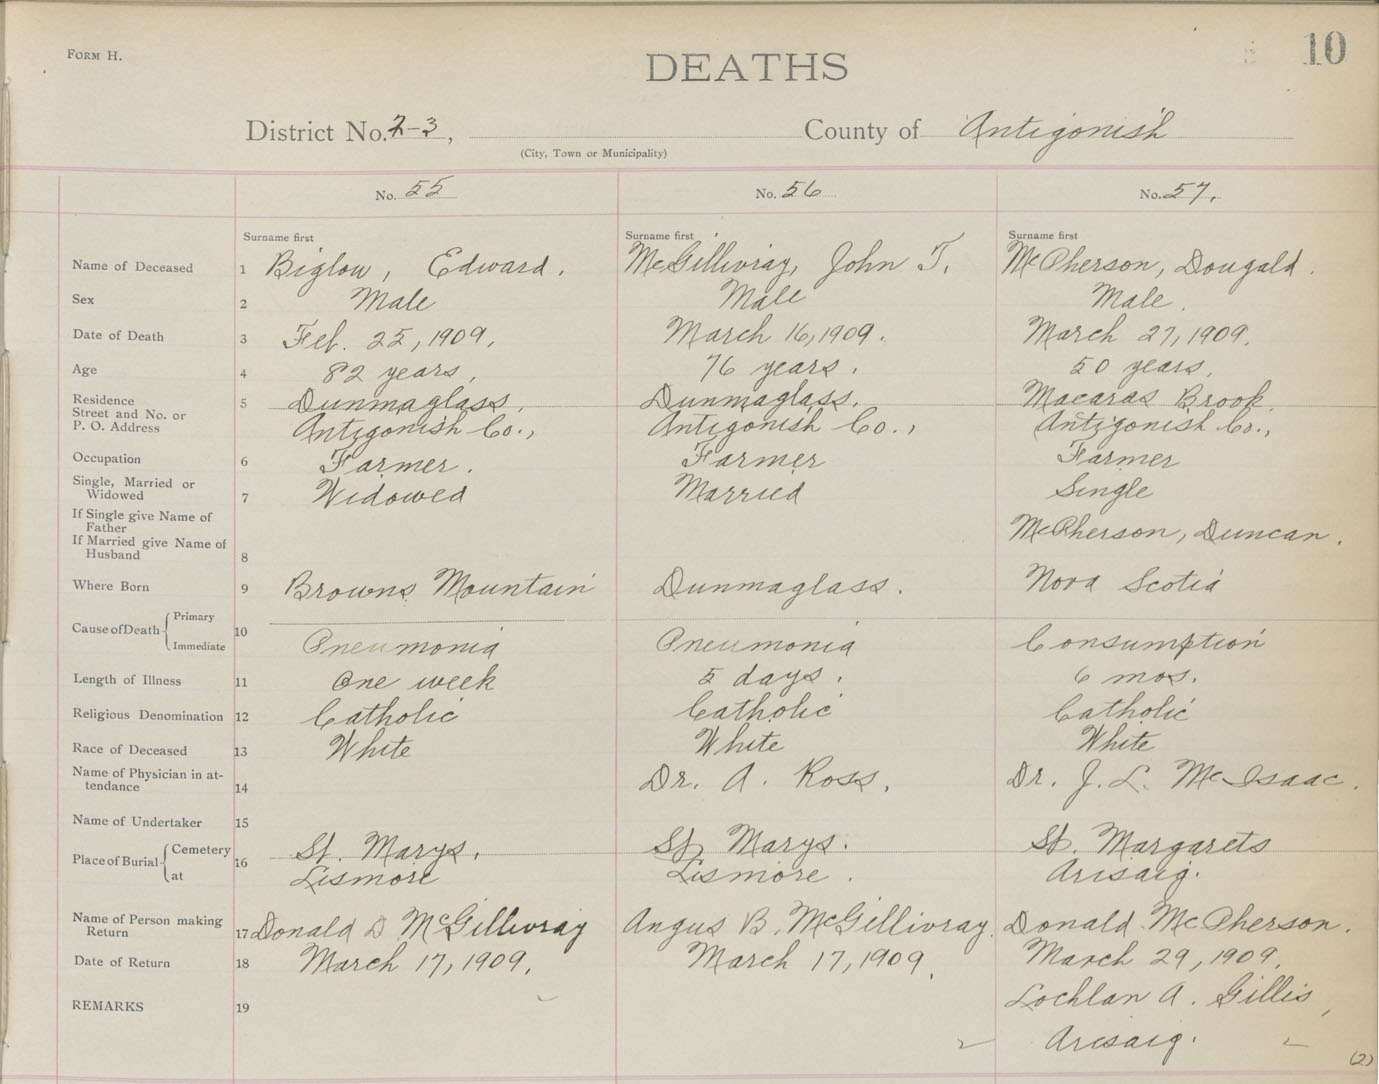 FORM H.
10
DEATHS
District No. 2-3, County of Antigonish
(City, Town or Municipality)
No. 55 No. 56 No. 57.
Surname first Surname first Surname first
Name of Deceased 1 Biglow, Edward. McGillivray, John T. McPherson, Dougald.
Sex 2 Male Male Male.
Date of Death 3 Feb. 25, 1909. March 16, 1909. March 27, 1909.
Age 4 82 years. 76 years. 50 years.
Residence 5 Dunmaglass. Dunmaglass. Macaras Brook.
Street and No. or
P. O. Address Antigonish Co., Antigonish Co., Antigonish Co.,
Occupation 6 Farmer. Farmer Farmer
Single, Married or
Widowed 7 Widowed Married Single
If Single give Name of
Father McPherson, Duncan.
If Married give Name of
Husband 8
Where Born 9 Browns Mountain Dunmaglass. Nova Scotia
Cause of Death { Primary
10
Immediate Pneumonia Pneumonia Consumption
Length of Illness 11 One week 5 days. 6 mos.
Religious Denomination 12 Catholic Catholic Catholic
Race of Deceased 13 White White White
Name of Physician in at-
tendance 14 Dr. A. Ross. Dr. J. L. McIsaac.
Name of Undertaker 15
Place of Burial { Cemetery 16 St. Marys. St. Marys. St. Margarets
at Lismore Lismore. Arisaig.
Name of Person making
Return 17 Donald D McGillivray Angus B. McGillivray. Donald McPherson.
Date of Return 18 March 17, 1909. March 17, 1909. March 29, 1909.
REMARKS 19 Lochlan A. Gillis,
Arisaig.
(2)